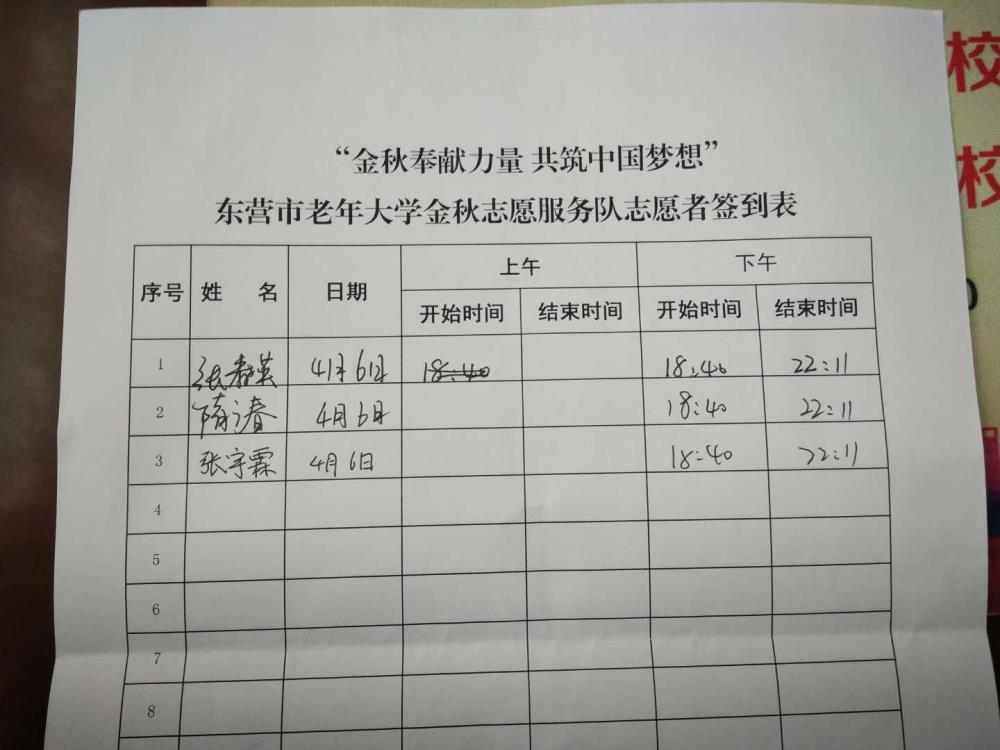 校
校
“金秋奉献力量 共筑中国梦想”
东营市老年大学金秋志愿服务队志愿者签到表
序号 姓 名 日期 上午 下午
开始时间 结束时间 开始时间 结束时间
1 张春英 4月6日 18:40 18:40 22:11
2 隋 春 4月6日 18:40 22:11
3 张宇霖 4月6日 18:40 22:11
4
5
6
7
8